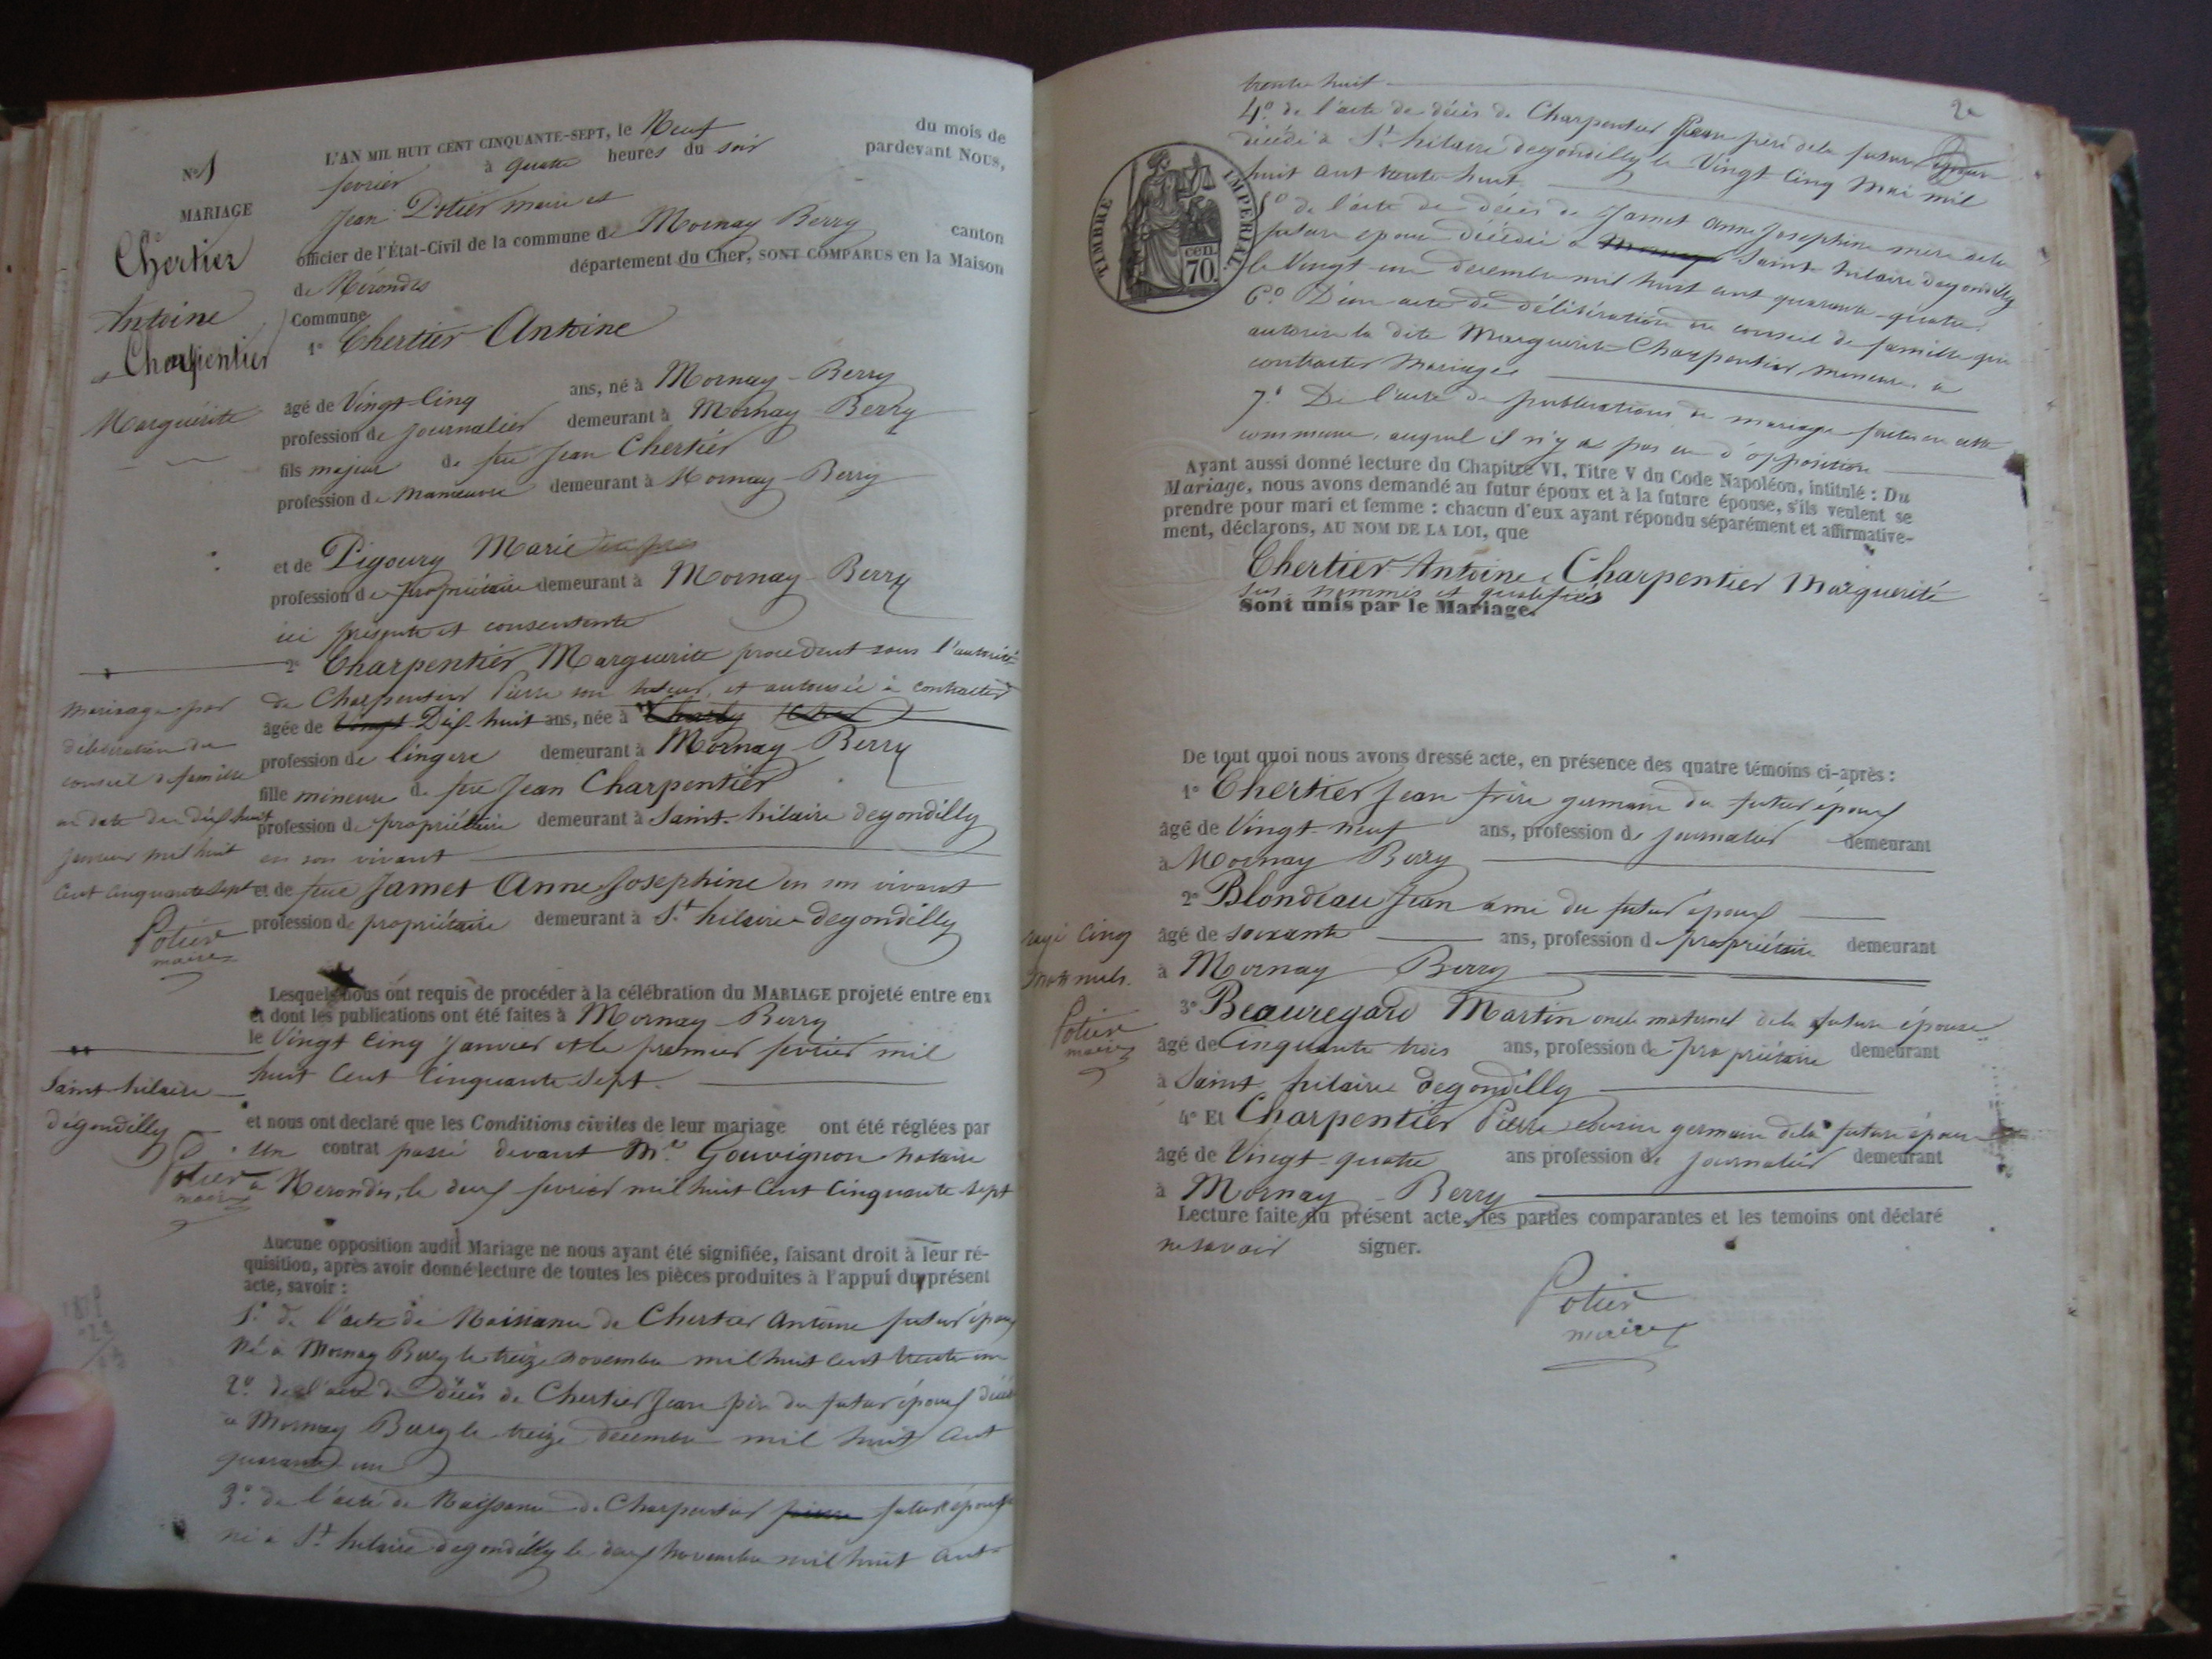 N° 1
MARIAGE
Chertier
Antoine
et Charpentier
Marguérite
L'AN MIL HUIT CENT CINQUANTE-SEPT, le Neuf du mois de
fevrier à quatre heures du soir pardevant NOUS,
Jean Potier maire et
officier de l'État-Civil de la commune de Mornay Berry canton
de Nérondes département du Cher, SONT COMPARUS en la Maison
Commune
1° Chertier Antoine
âgé de Vingt Cinq ans, né à Mornay-Berry
profession de journalier demeurant à Mornay-Berry
fils majeur de feu Jean Chertier
profession de manœuvre demeurant à Mornay-Berry
et de Pigoury Marie
profession de propriétaire demeurant à Mornay-Berry
ici présente et consentente
2° Charpentier Marguerite procedent sous l'autorité
de Charpentier Pierre son tuteur, et autorisée à contracter
mariage par
déliberation du
conseil de famille
en date du dix huit
janvier mil huit
cent cinquante sept
Potier
maire
âgée de Vingt Dix-huit ans, née à Charly Cher
profession de lingère demeurant à Mornay-Berry
fille mineure de feu Jean Charpentier
profession de propriétaire demeurant à Saint-hilaire degondilly
en son vivant
et de feue Jamet Anne Josephine en son vivant
profession de propriétaire demeurant à St hilaire degondilly
Lesquels nous ont requis de procéder à la célébration du MARIAGE projeté entre eux
et dont les publications ont été faites à Mornay-Berry
le Vingt Cinq Janvier et le premier fevrier mil
huit Cent Cinquante Sept.
Saint-hilaire
dégondilly
Potier
maire
et nous ont declaré que les Conditions civiles de leur mariage ont été réglées par
Un contrat passé devant Me Gouvignon notaire
a Nerondes, le deux fevrier mil huit Cent Cinquante Sept
Aucune opposition audit Mariage ne nous ayant été signifiée, faisant droit à leur ré-
quisition, après avoir donné lecture de toutes les pièces produites à l'appui du présent
acte, savoir :
1° de l'acte de Naissance de Chertier Antoine futur époux
Né à Mornay Berry le treize novembre mil huit cent trente un
2° de l'acte de décès de Chertier Jean père du futur époux décédé
a Mornay Berry le treize decembre mil huit cent
quarante un
3° de l'acte de Naissance de Charpentier future épouse
né a St hilaire degondilly le deux novembre mil huit cent
2e
trente huit
4° de l'acte de décès de Charpentier Jean père dela future épouse
décédé à St hilaire degondilly le Vingt Cinq Mai mil
huit cent trente huit.
TIMBRE IMPERIAL
cen.
70.
5° de l'acte de décès de Jamet Anne Josephine mère dela
future epouse décédée à Saint hilaire degondilly
le Vingt-un decembre mil huit cent quarante-quatre.
6° D'un acte de délibération du conseil de famille qui
autorise la dite Marguerite Charpentier mineure à
contracter Mariage
7° De l'acte de publications de mariage faites en cette
commune, auquel il n'y a pas eu d'opposition
Ayant aussi donné lecture du Chapitre VI, Titre V du Code Napoléon, intitulé : Du
Mariage, nous avons demandé au futur époux et à la future épouse, s'ils veulent se
prendre pour mari et femme : chacun d'eux ayant répondu séparément et affirmative-
ment, déclarons, AU NOM DE LA LOI, que
Chertier Antoine & Charpentier Marguerite
Sus-nommés et qualifiés
Sont unis par le Mariage.
De tout quoi nous avons dressé acte, en présence des quatre témoins ci-après :
1° Chertier Jean frère germain du futur époux
âgé de Vingt-neuf ans, profession de journalier demeurant
à Mornay Berry
2° Blondeau Jean ami du futur époux
âgé de soixante ans, profession de propriétaire demeurant
à Mornay Berry
rayé Cinq
mots nuls.
Potier
maire
3° Beauregard Martin oncle maternel dela future épouse
âgé de Cinquante trois ans, profession de propriétaire demeurant
à Saint hilaire degondilly
4° Et Charpentier Pierre cousin germain dela future épouse
âgé de Vingt-quatre ans profession de journalier demeurant
à Mornay-Berry
Lecture faite du présent acte, les parties comparantes et les temoins ont déclaré
ne savoir signer.
Potier
maire